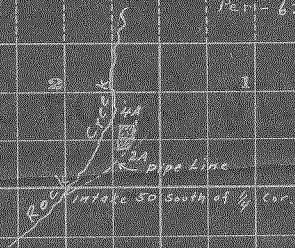 Peri-6
2
1
Creek
4A
2A
Pipe Line
Rock
intake 50 South of 1/4 Cor.